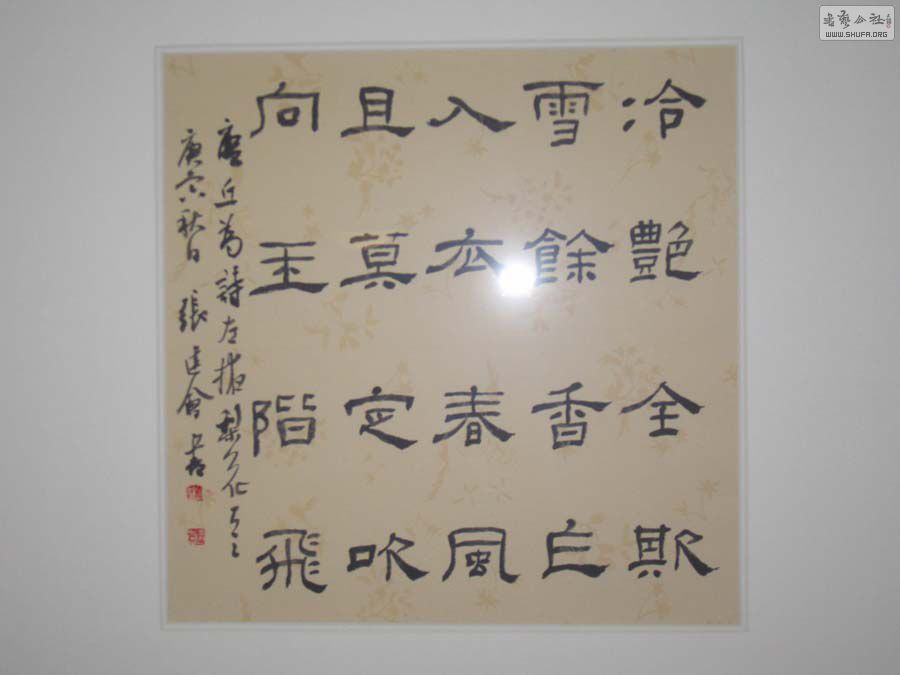 冷艷全欺
雪餘香乍
入衣春風
且莫定吹
向玉階飛
唐丘為詩左掖梨花
庚寅秋日 張建會書
書藝公社
WWW.SHUFA.ORG